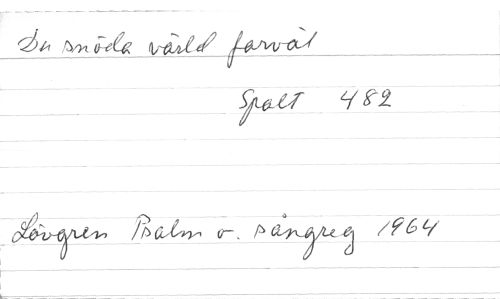 Du snöda värld farväl
Spalt 482
Lövgren Psalm o. sångreg 1964